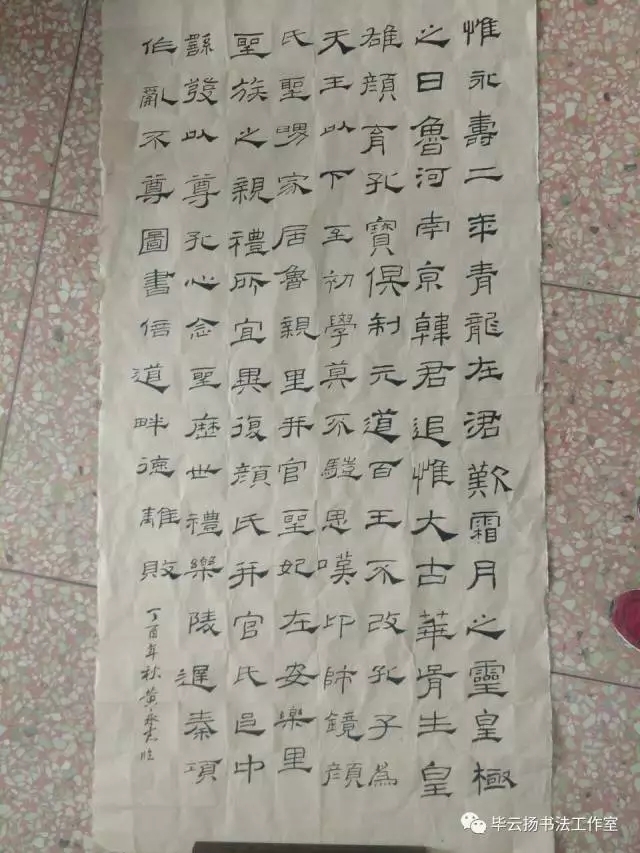 惟永壽二年青龍在涒歎霜月之靈皇極
之日魯河南京韓君追惟大古華胥生皇
雄顏育孔寶俱制元道百王不改孔子為
天王以下至初學莫不思嘆卬師鏡顏
氏聖舅家居魯親里并官聖妃在安樂里
聖族之親禮所宜異復顏氏并官氏邑中
繇發以尊孔心念聖歷世禮樂陵遲秦項
作亂不尊圖書倍道畔德離敗
丁酉年秋黃永臨
毕云扬书法工作室